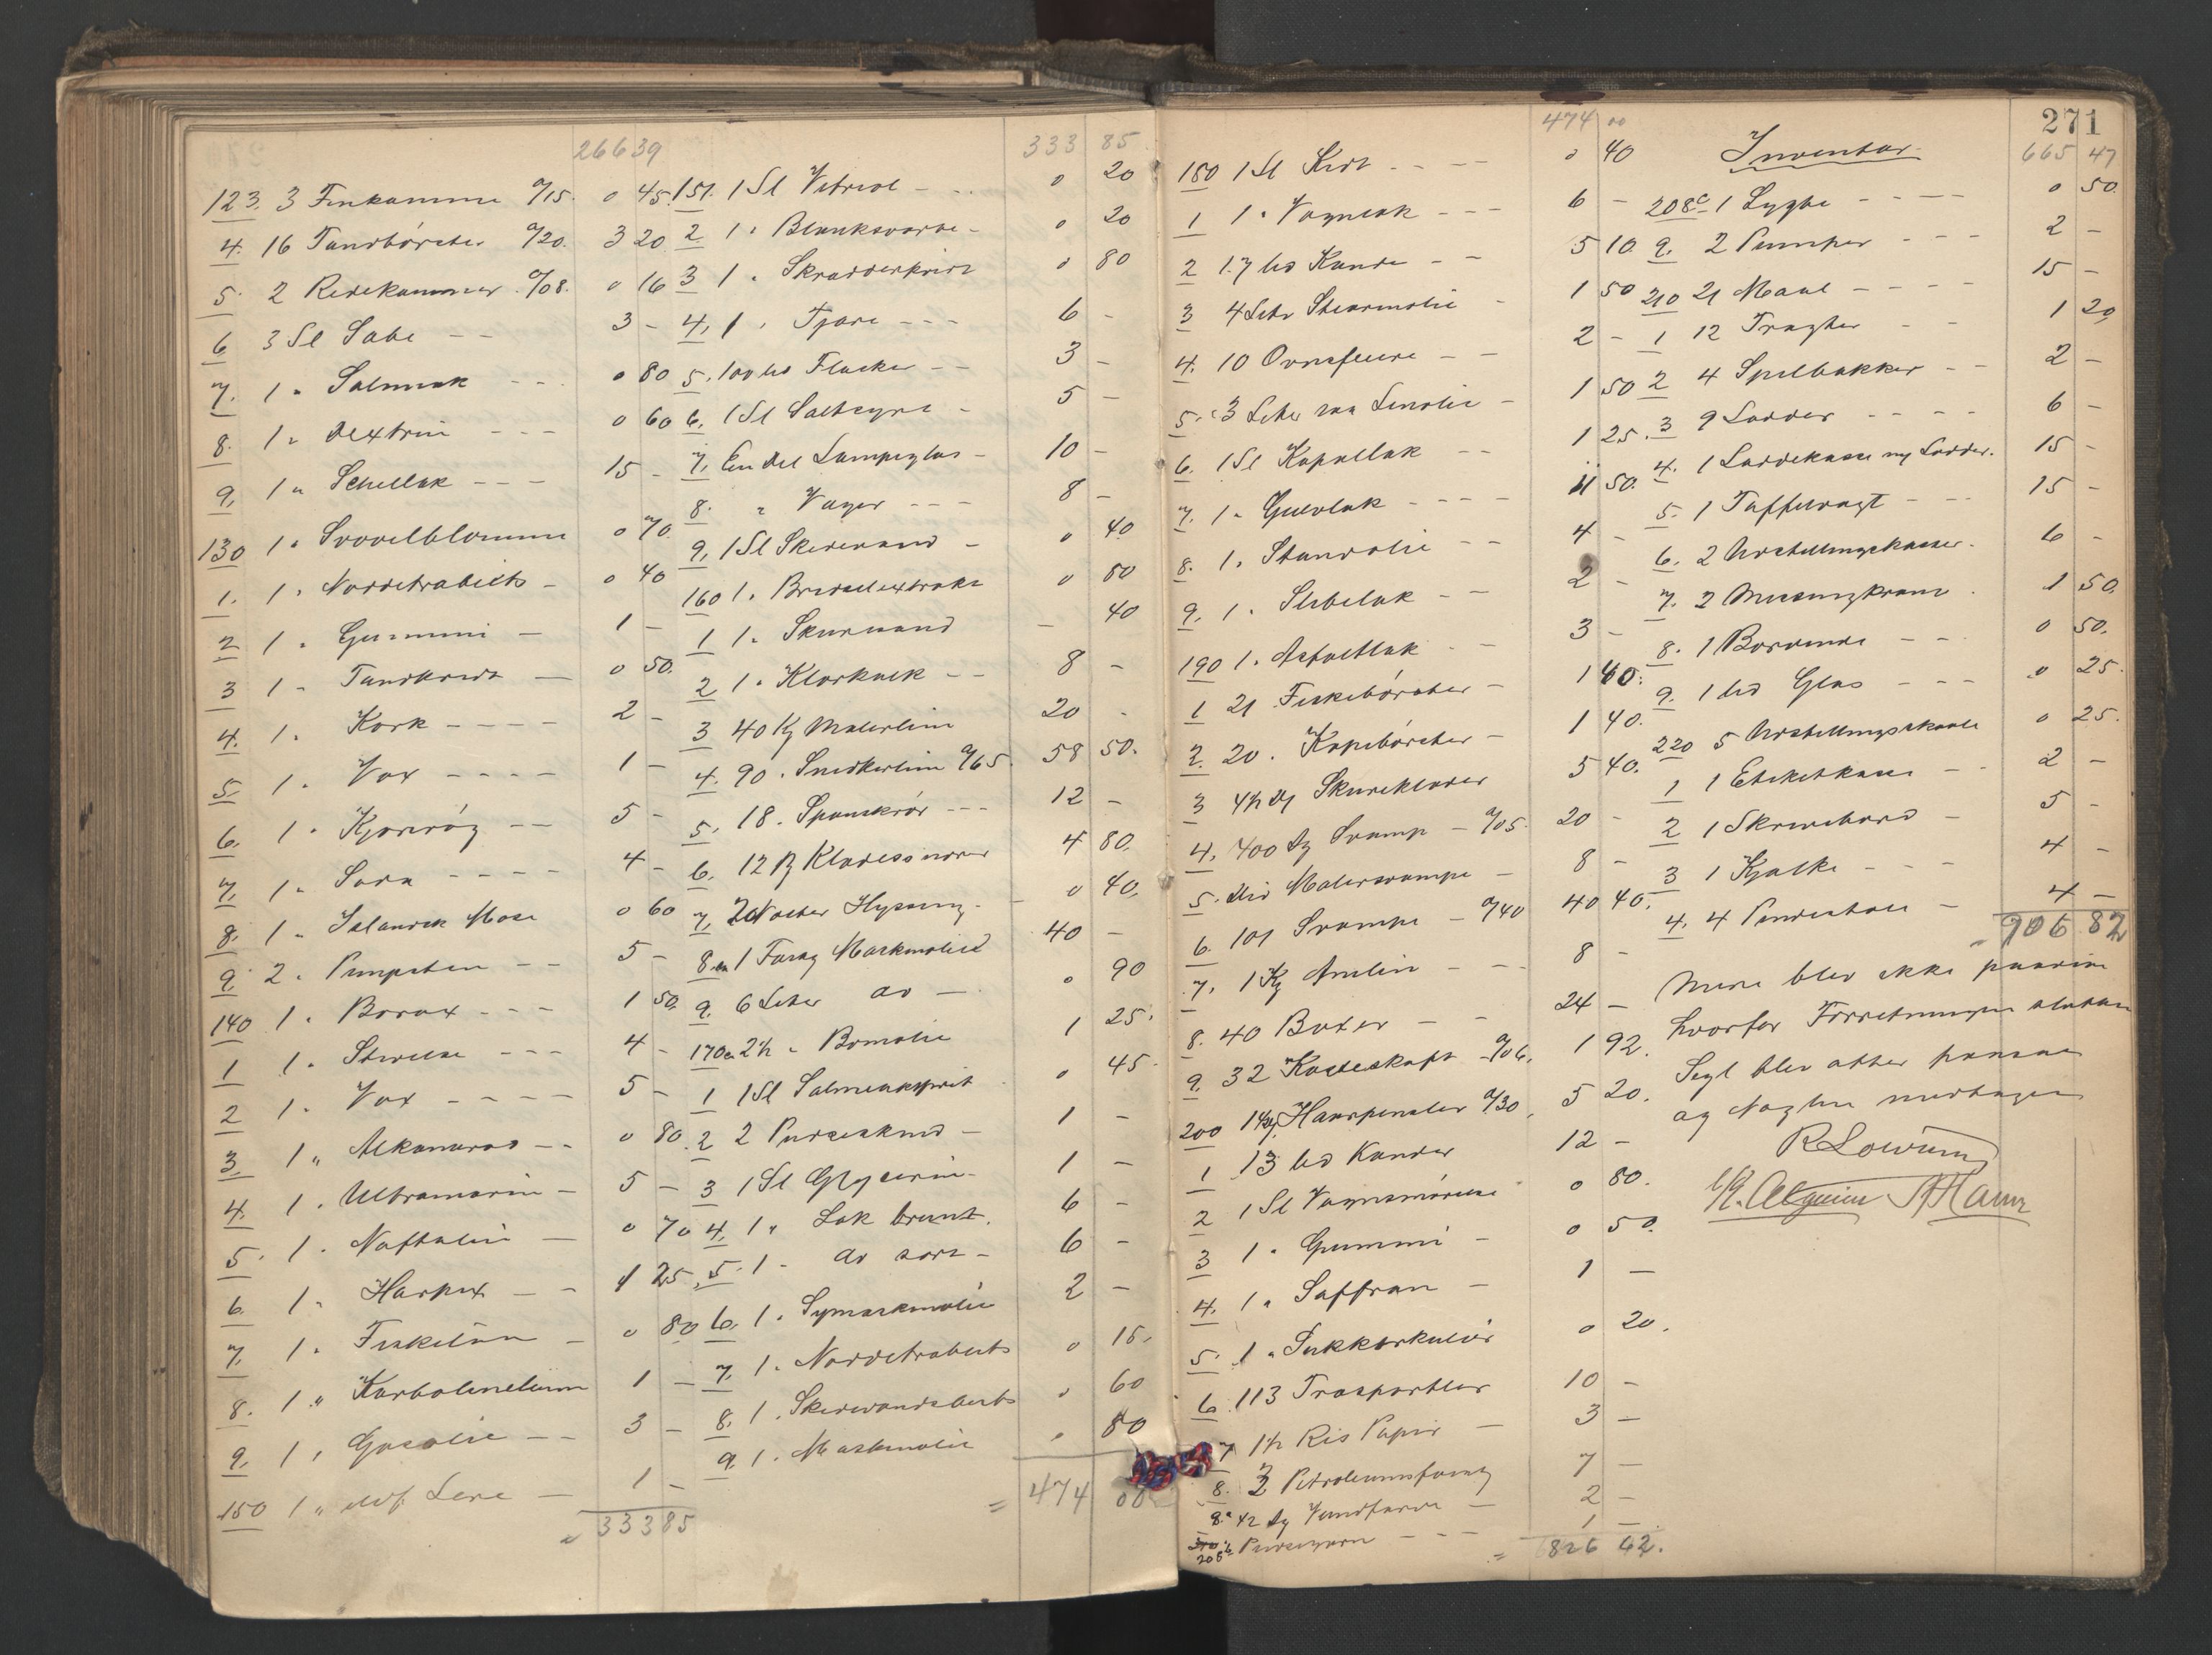 26639
123. 3 Finkamme a/15. 0 45.
4. 16 Tandbörster a/20. 3 20
5. 2 Redekammer a/08. 0 16
6 3 Sl Sæbe - - 3 -
7. 1 " Salmiak - - 0 80
8. 1 " Dextrin - - - 0 60
9. 1 " Schellak - - - 15 -
130 1 " Svovelblomme 0 70.
1. 1 " - 0 40
2 1 " Gummi - 1 -
3 1 " Tandkridt - 0 50.
4. 1 " Kork - - - - 2 -
5. 1 " Vox - - - - 1 -
6. 1 " Kjønrøg - - 5 -
7. 1 " Soda - - - - 4 -
8. 1 " Islandsk Mose 0 60
9. 2 " Pimpsten - - 5 -
140 1 " Borax - - - 1 50.
1 1 " Stivelse - - - 4 -
2 1 " Vox - - - - 5 -
3. 1 " Alkanarod - - 0 80.
4. 1 " Ultramarin - 5 -
5. 1 " Naftalin - 0 70
6. 1 " Harpix - - 1 25.
7. 1 " Fiskelim - 0 80
8. 1 " Karbolineum 1 -
9. 1 " Gasolie - - 3 -
150 1 " Lere - 1 -
333 85
333 85
151. 1 Sl Vitriol - - 0 20
2 1 " Blanksværte - 0 20
3 1 " Skrædderkridt 0 80
4. 1 " Tjære - - - 6 -
5. 100 Flasker - - 3 -
6. 1 Sl Saltsyre - 5 -
7. En Del Lampeglas - 10 -
8. " Vager - - - 8 -
9. 1 Sl Skedevand - 0 40
160 1 " 0 80
1 1 " Skurevand - 40
2 1 " Klorkalk - - 8 -
3 40 Kg Malerlim 20 -
4. 90 " Snedkerlim a/65. 58 50.
5. 18 " Spanskrør - - - 12 -
6. 12 Klædessnorer 4 80.
7. 0 40.
8.a 1 Fustg Maskinolie 40 -
9. 6 Liter do - 0 90
170a 2½ " Bomolie 1 25.
1 1 Sl Salmiakspirit 0 45.
2 2 Pudseskind - 1 -
3 1 Sl Glycerin - 1 -
4. 1 " Lak brunt. 6 -
5. 1 " do sort - 6 -
6. 1 " Symaskinolie 2 -
7. 1 " 0 15.
8. 1 " 0 60
9. 1 " Maskinolie 0 80
= 474 00
474 00
180 1 Sl Kit - - - 0 40
1 1 " Vognlak - - - 6 -
2 17 Kande - - 5 10.
3 4 Liter Stearinolie - 1 50
4. 10 - - 2 -
5. 3 Liter raa Linolie - 1 50
6. 1 Sl Kopallak - - 1 25.
7. 1 " Gulvlak - - - - 11 50.
8. 1 " Standolie - - 4 -
9. 1 " Slibelak - - 2 -
190 1 " Asfaltlak - - 3 -
1 21 Fiskebörster - 1 40.
2. 20 " Kopibörster - 1 40.
3 4½ Dz Skureklæder 5 40.
4. 400 Svamp - a/05. 20 -
5. Div Malersvampe - 8 -
6. 101 Svampe - a/40 40 40.
7. 1 Kg Anilin - - - 8 -
8. 40 Bøter - - 24 -
9. 32 Kosteskaft - a/06. 1 92.
200 Haarpensler a/30. 5 20.
1 13 Kander 12 -
2 1 Sl Vognsmörelse 0 80.
3 1 " Gummi - 0 50.
4. 1 " Saffran - 1 -
5. 1 " Sukkerkulør 0 20.
6. 113 10 -
7 1½ Ris Papir - 3 -
8. 2 Petroleumsfustg 7 -
8.a ½ Dz Vandfarve - 2 -
208b Pudsegarn - - - 1 -
271
Inventar
665 47
208c 1 Lygte - - - - 0 50.
9. 2 Pumper - - - 2 -
210 21 Maal - - - - 15 -
1 12 Tragter - - 1 20
2 4 Spilbakker - - 2 -
3 9 Ladder - - - - 6 -
4. 1 15 -
5. 1 Taffelvægt - - - 15 -
6. 2 Udstillingskasser. 6 -
7. 2 Messingkrane . 1 50.
8. 1 Borvinde - - 0 50.
9. 1 Glas - - - 0 25.
220 5 Udstillingsskaale 0 25.
1 1 Etiketkasse - - 2 -
2 1 Skrivebord - 5 -
3 1 Kjælke - - - 4 -
4. 4 - 4 -
= 706 82
Mere blev ikke paavist
hvorfor Forretningen sluttes
Segl blev atter paasat
og Nøglen modtagen